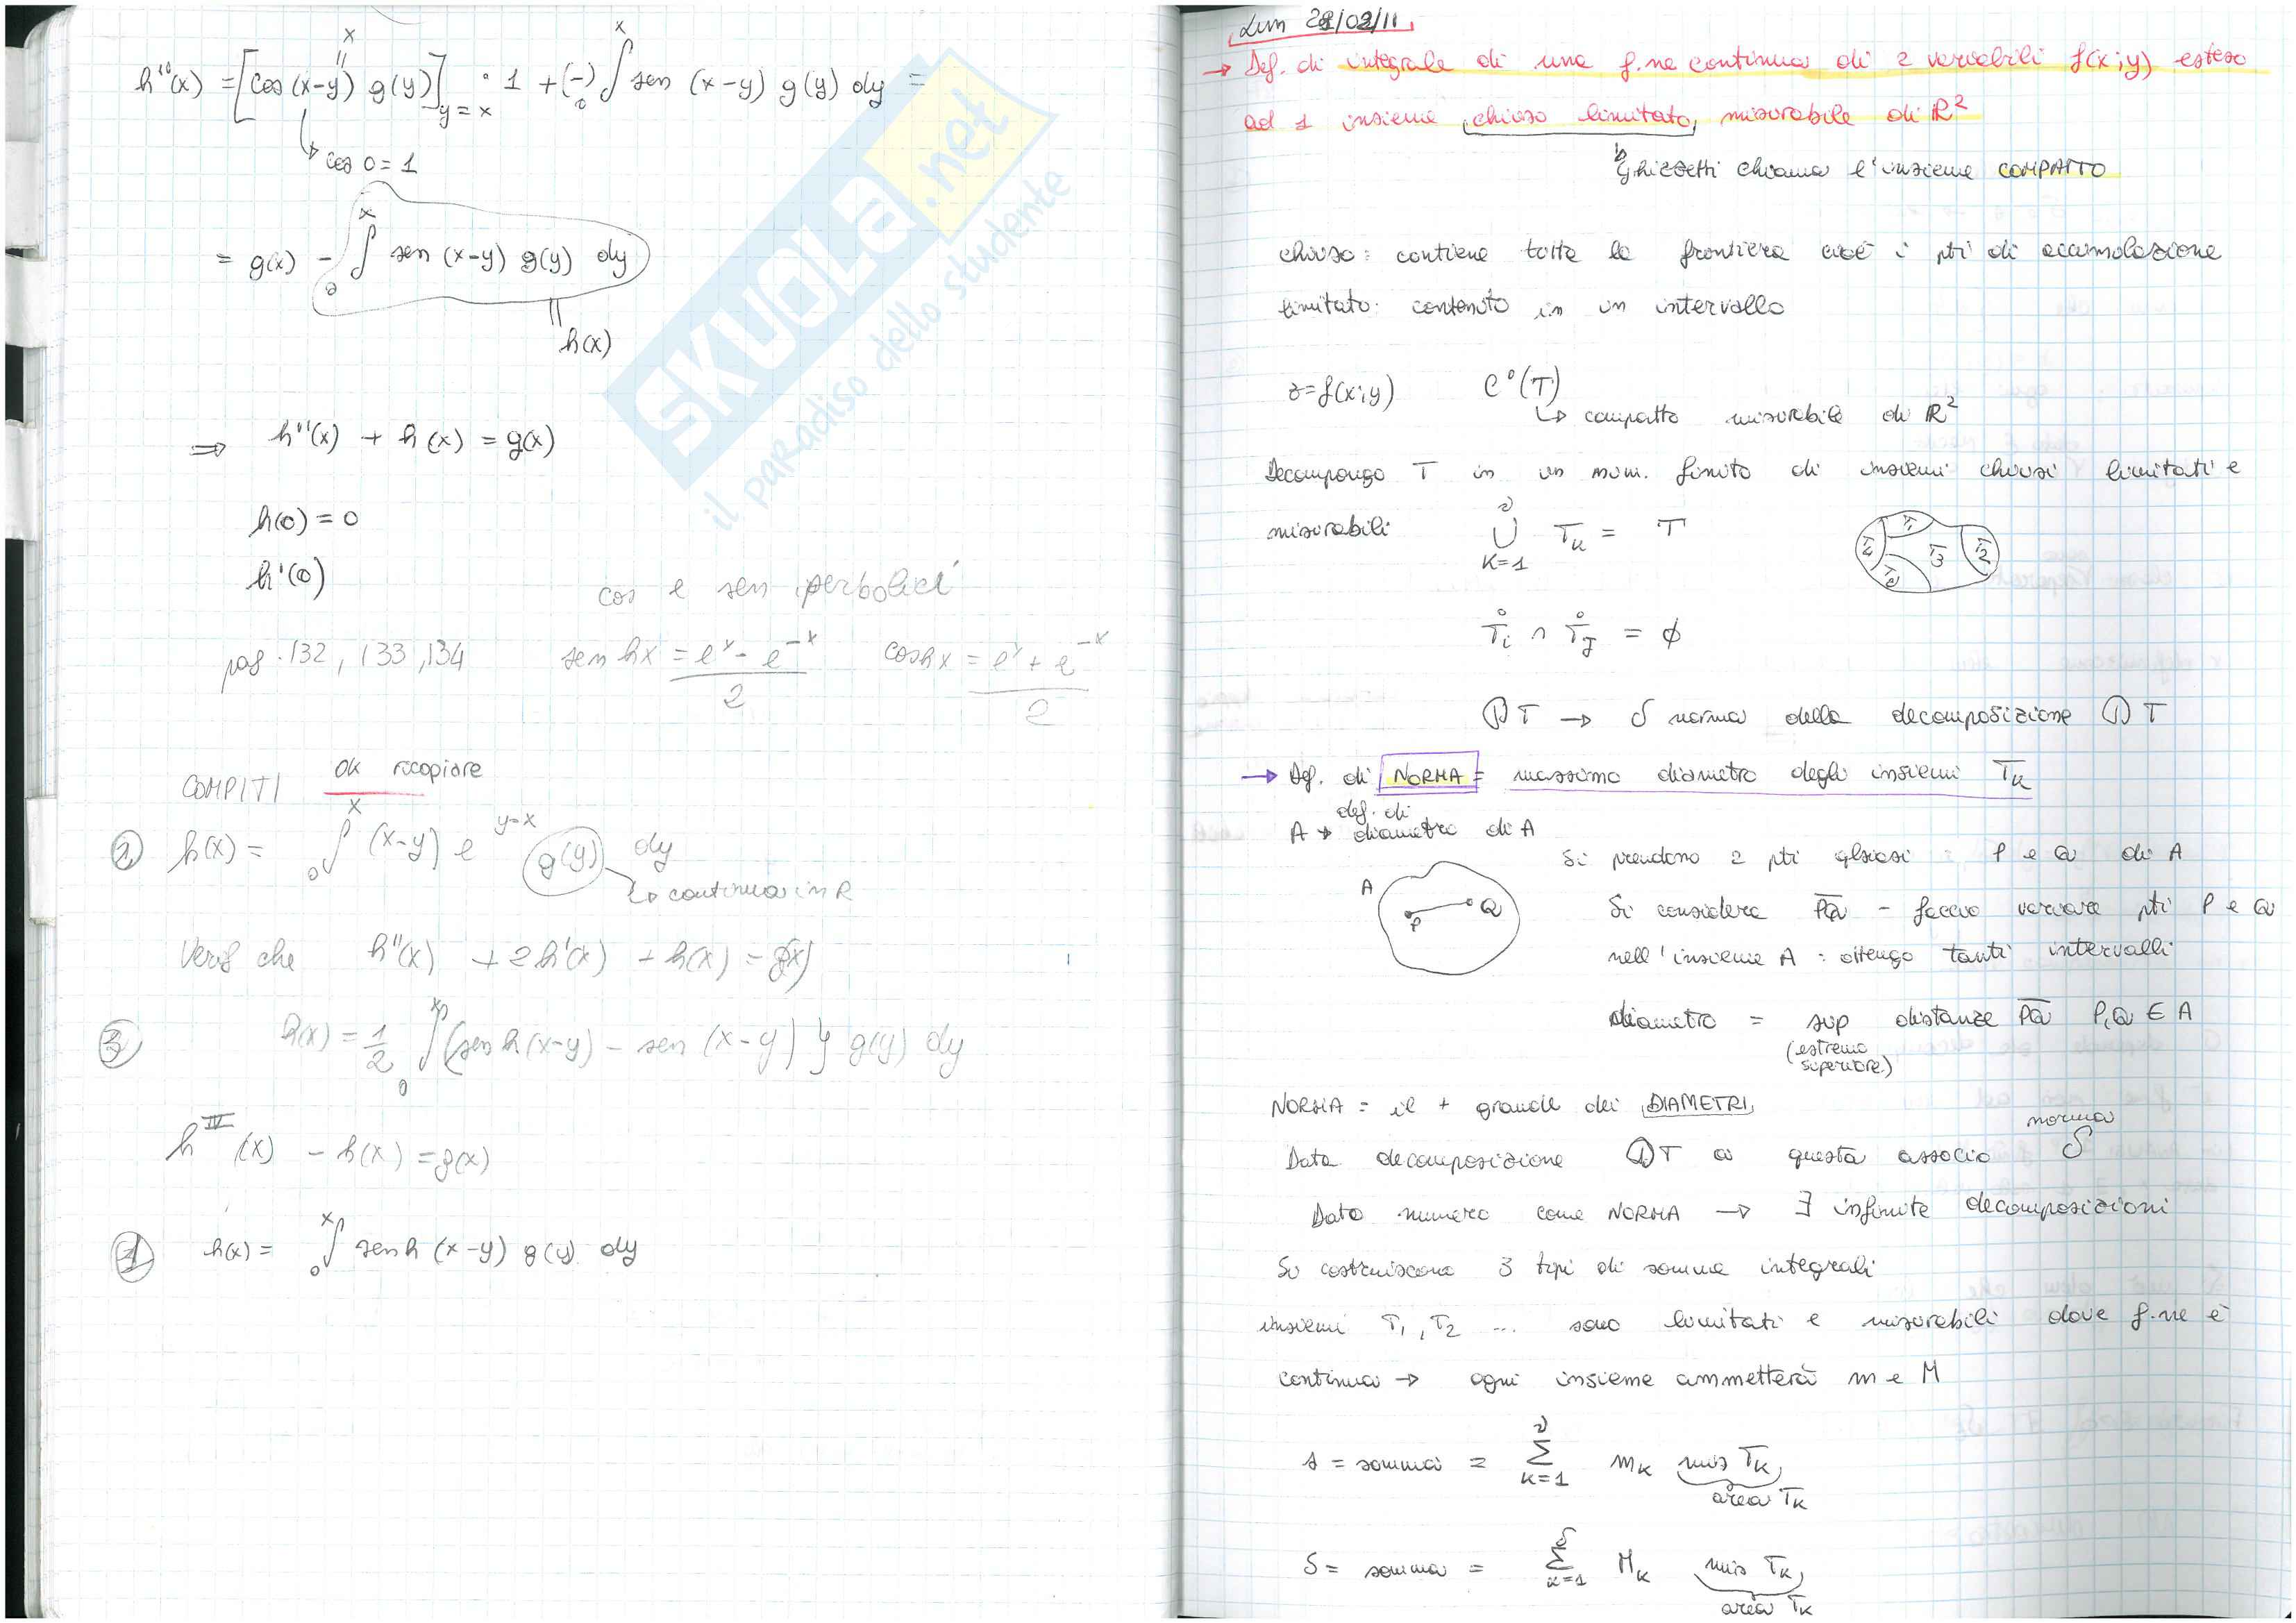 h''(x) = [cos(x-y) g(y)]y=x · 1 + (-) ∫₀ˣ sen (x-y) g(y) dy =
x
cos 0 = 1
= g(x) - ∫₀ˣ sen (x-y) g(y) dy
h(x)
⇒ h''(x) + h(x) = g(x)
h(0) = 0
h'(0)
cos e sen iperbolici
pag. 132, 133, 134 senhx = (eˣ - e⁻ˣ)/2 coshx = (eˣ + e⁻ˣ)/2
COMPITI ok ricopiare
② h(x) = ∫₀ˣ (x-y) e^(y-x) g(y) dy
↳ continua in R
Verif che h''(x) + 2h'(x) + h(x) = g(x)
③ h(x) = 1/2 ∫₀ˣ (senh(x-y) - sen (x-y)} g(y) dy
h^IV (x) - h(x) = g(x)
① h(x) = ∫₀ˣ senh (x-y) g(y) dy
SKUOLA.net
il paradiso dello studente
Lun 28/02/11
→ Def. di integrale di una f.ne continua di 2 variabili f(x;y) esteso
ad 1 insieme chiuso limitato, misurabile di R²
↳ Ghizzetti chiama l'insieme COMPATTO
chiuso: contiene tutta la frontiera cioè i pti di accumulazione
limitato: contenuto in un intervallo
z=f(x;y) C°(T)
↳ compatto misurabile di R²
Decompongo T in un num. finito di insiemi chiusi limitati e
misurabili ∪_{K=1}^ν T_K = T
T₁ T₂ T₃ T₄
T̊i ∩ T̊J = ∅
DT → δ norma della decomposizione DT
→ Def. di NORMA = massimo diametro degli insiemi T_K
def. di
A → diametro di A
Si prendono 2 pti qlsiasi : P e Q di A
A P Q
Si considera PQ - faccio variare pti P e Q
nell'insieme A : ottengo tanti intervalli
diametro = sup distanze PQ P,Q ∈ A
(estremo
superiore)
NORMA = il + grande dei DIAMETRI
norma
Data decomposizione DT a questa associo δ
Dato numero come NORMA → ∃ infinite decomposizioni
Si costruiscono 3 tipi di somme integrali
insiemi T₁, T₂ ... sono limitati e misurabili dove f.ne è
continua → ogni insieme ammetterà m e M
s = somma = Σ_{K=1}^ν m_K mis T_K
area T_K
S = somma = Σ_{K=1}^ν M_K mis T_K
area T_K